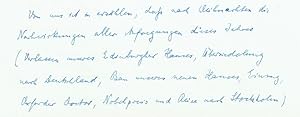 Von uns ist zu erzählen, dass nach Weihnachten die
Nachwirkungen aller Aufregungen dieses Jahres
(Verlassen unseres Edinburgher Hauses, Übersiedelung
nach Deutschland, Bau unseres neuen Hauses, Einzug,
Oxforder Doctor, Nobelpreis und Reise nach Stockholm)